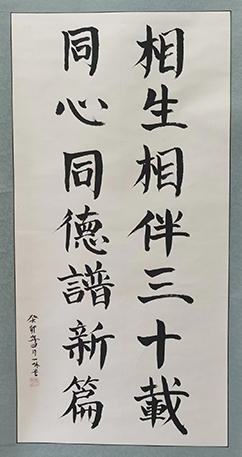 相生相伴三十載
同心同德譜新篇
癸卯年